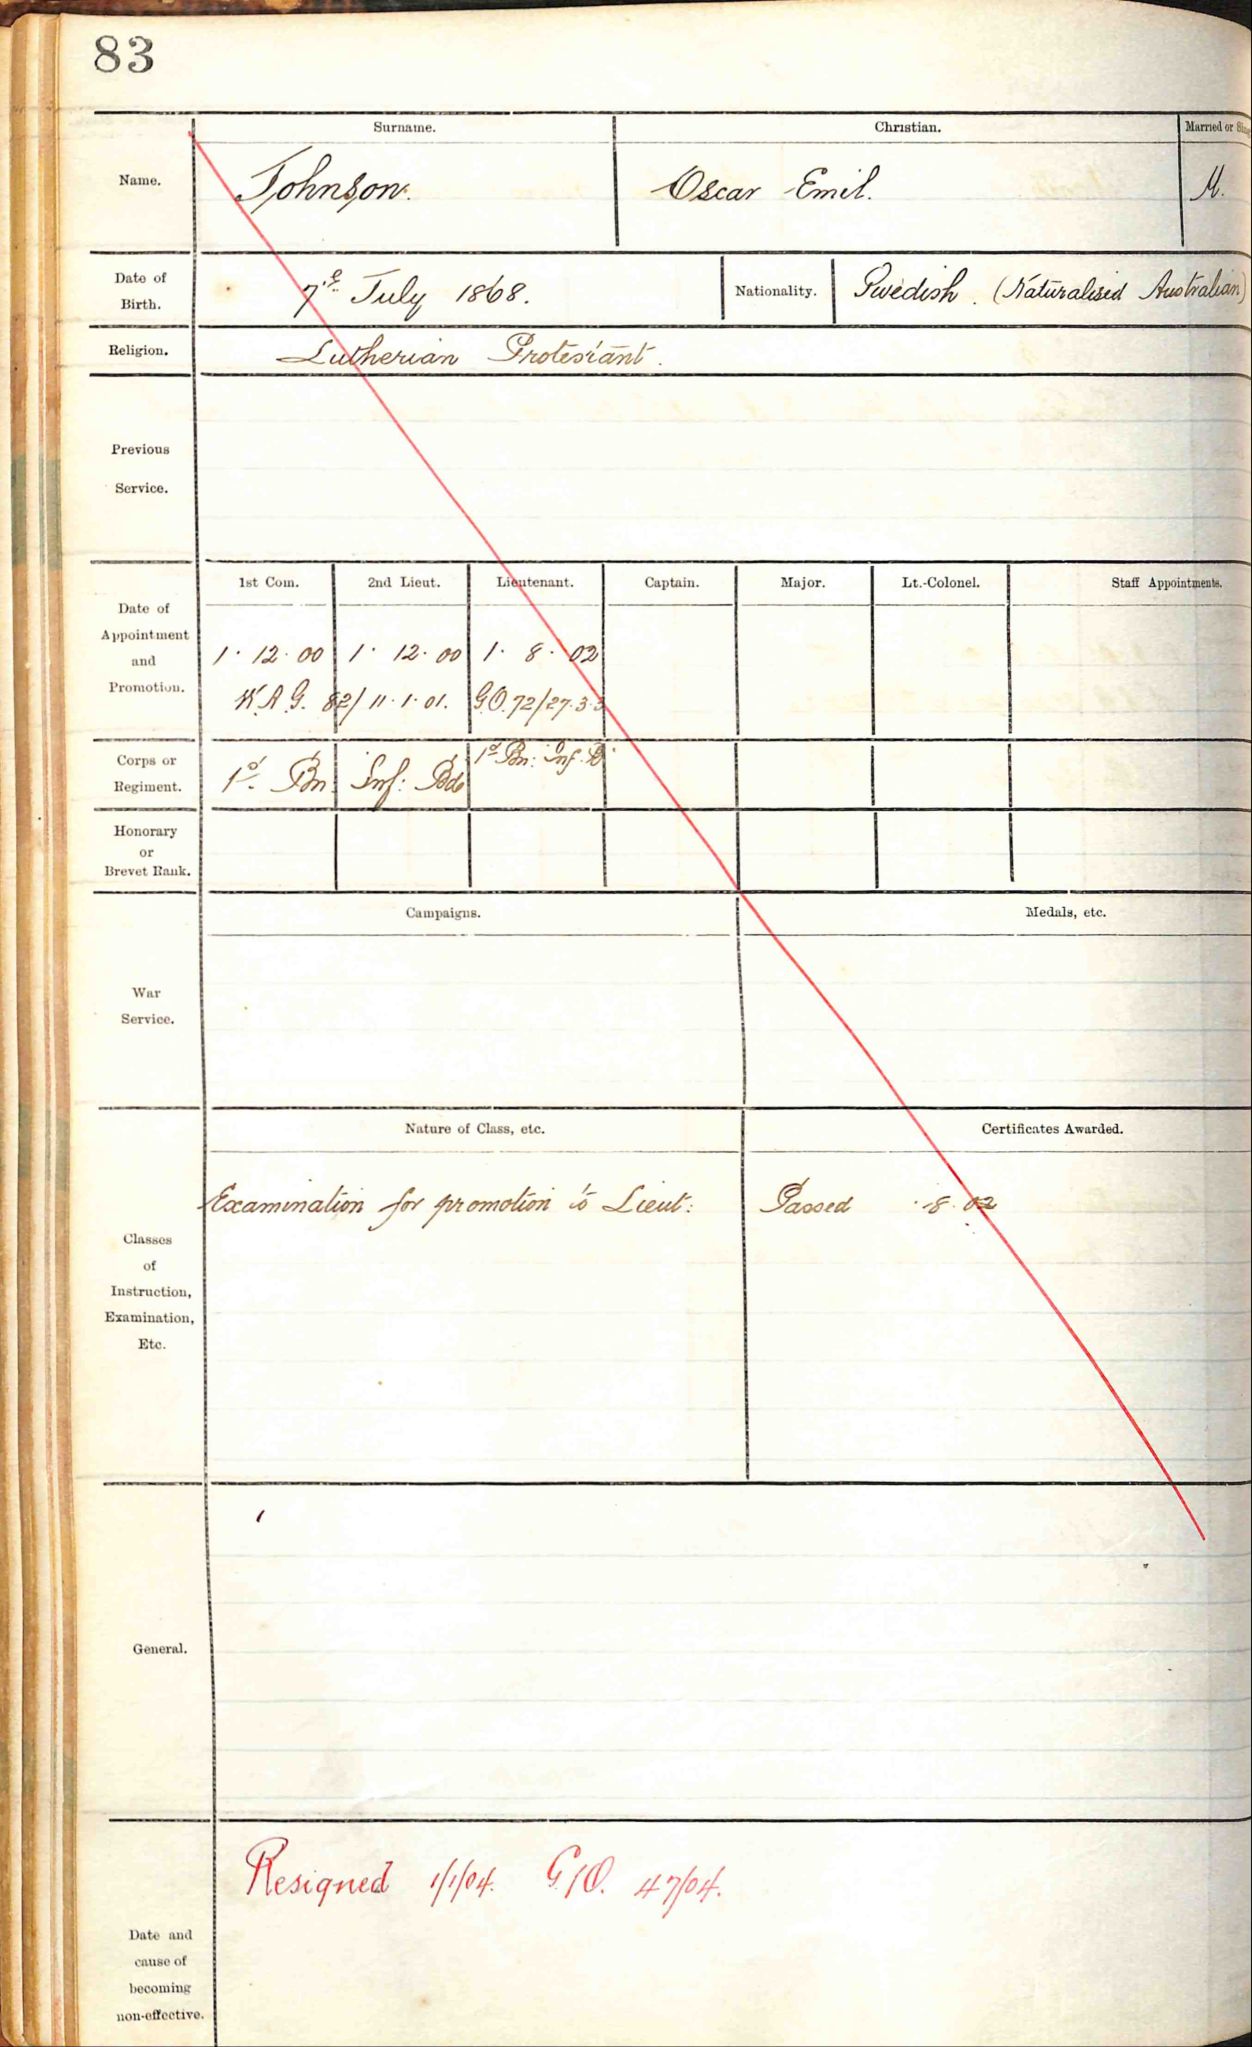 83
Surname. Christian. Married or
Name. Johnson. Oscar Emil. M.
Date of Birth. 7th July 1868. Nationality. Swedish. (Naturalised Australian)
Religion. Lutherian Protestant.
Previous
Service.
1st Com. 2nd Lieut. Lieutenant. Captain. Major. Lt.-Colonel. Staff Appointments.
Date of
Appointment
and
Promotion.
1. 12. 00 1. 12. 00 1. 8. 02
W.A.G. 82/11.1.01. G.O. 72/27.3.3
Corps or
Regiment.
1st Bn. Inf: Bde 1st Bn: Inf. B
Honorary
or
Brevet Rank.
Campaigns. Medals, etc.
War
Service.
Nature of Class, etc. Certificates Awarded.
Examination for promotion to Lieut: Passed .8.02
Classes
of
Instruction,
Examination,
Etc.
General.
Resigned 1/1/04. G/O. 47/04.
Date and
cause of
becoming
non-effective.